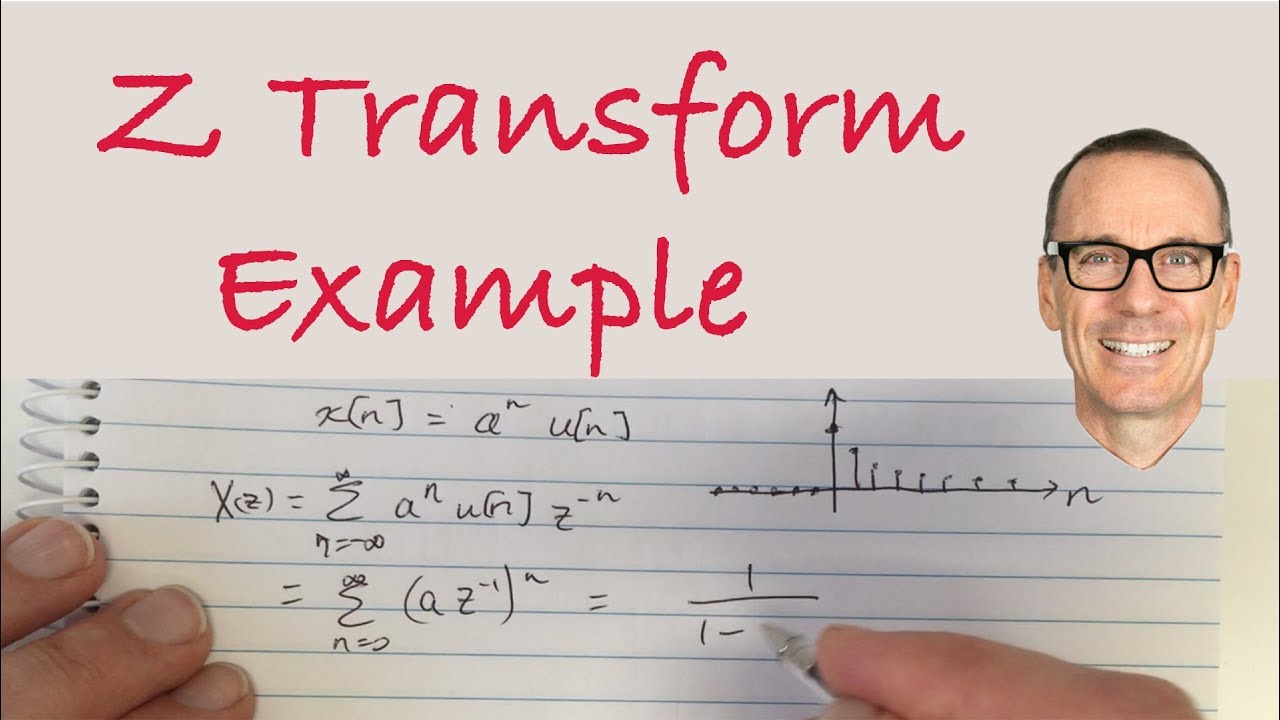 Z Transform
Example
x[n] = aⁿ u[n]
X(z) = ∑_{n=-∞}^{∞} aⁿ u[n] z⁻ⁿ
n
= ∑_{n=0}^{∞} (a z⁻¹)ⁿ = 1/(1 -